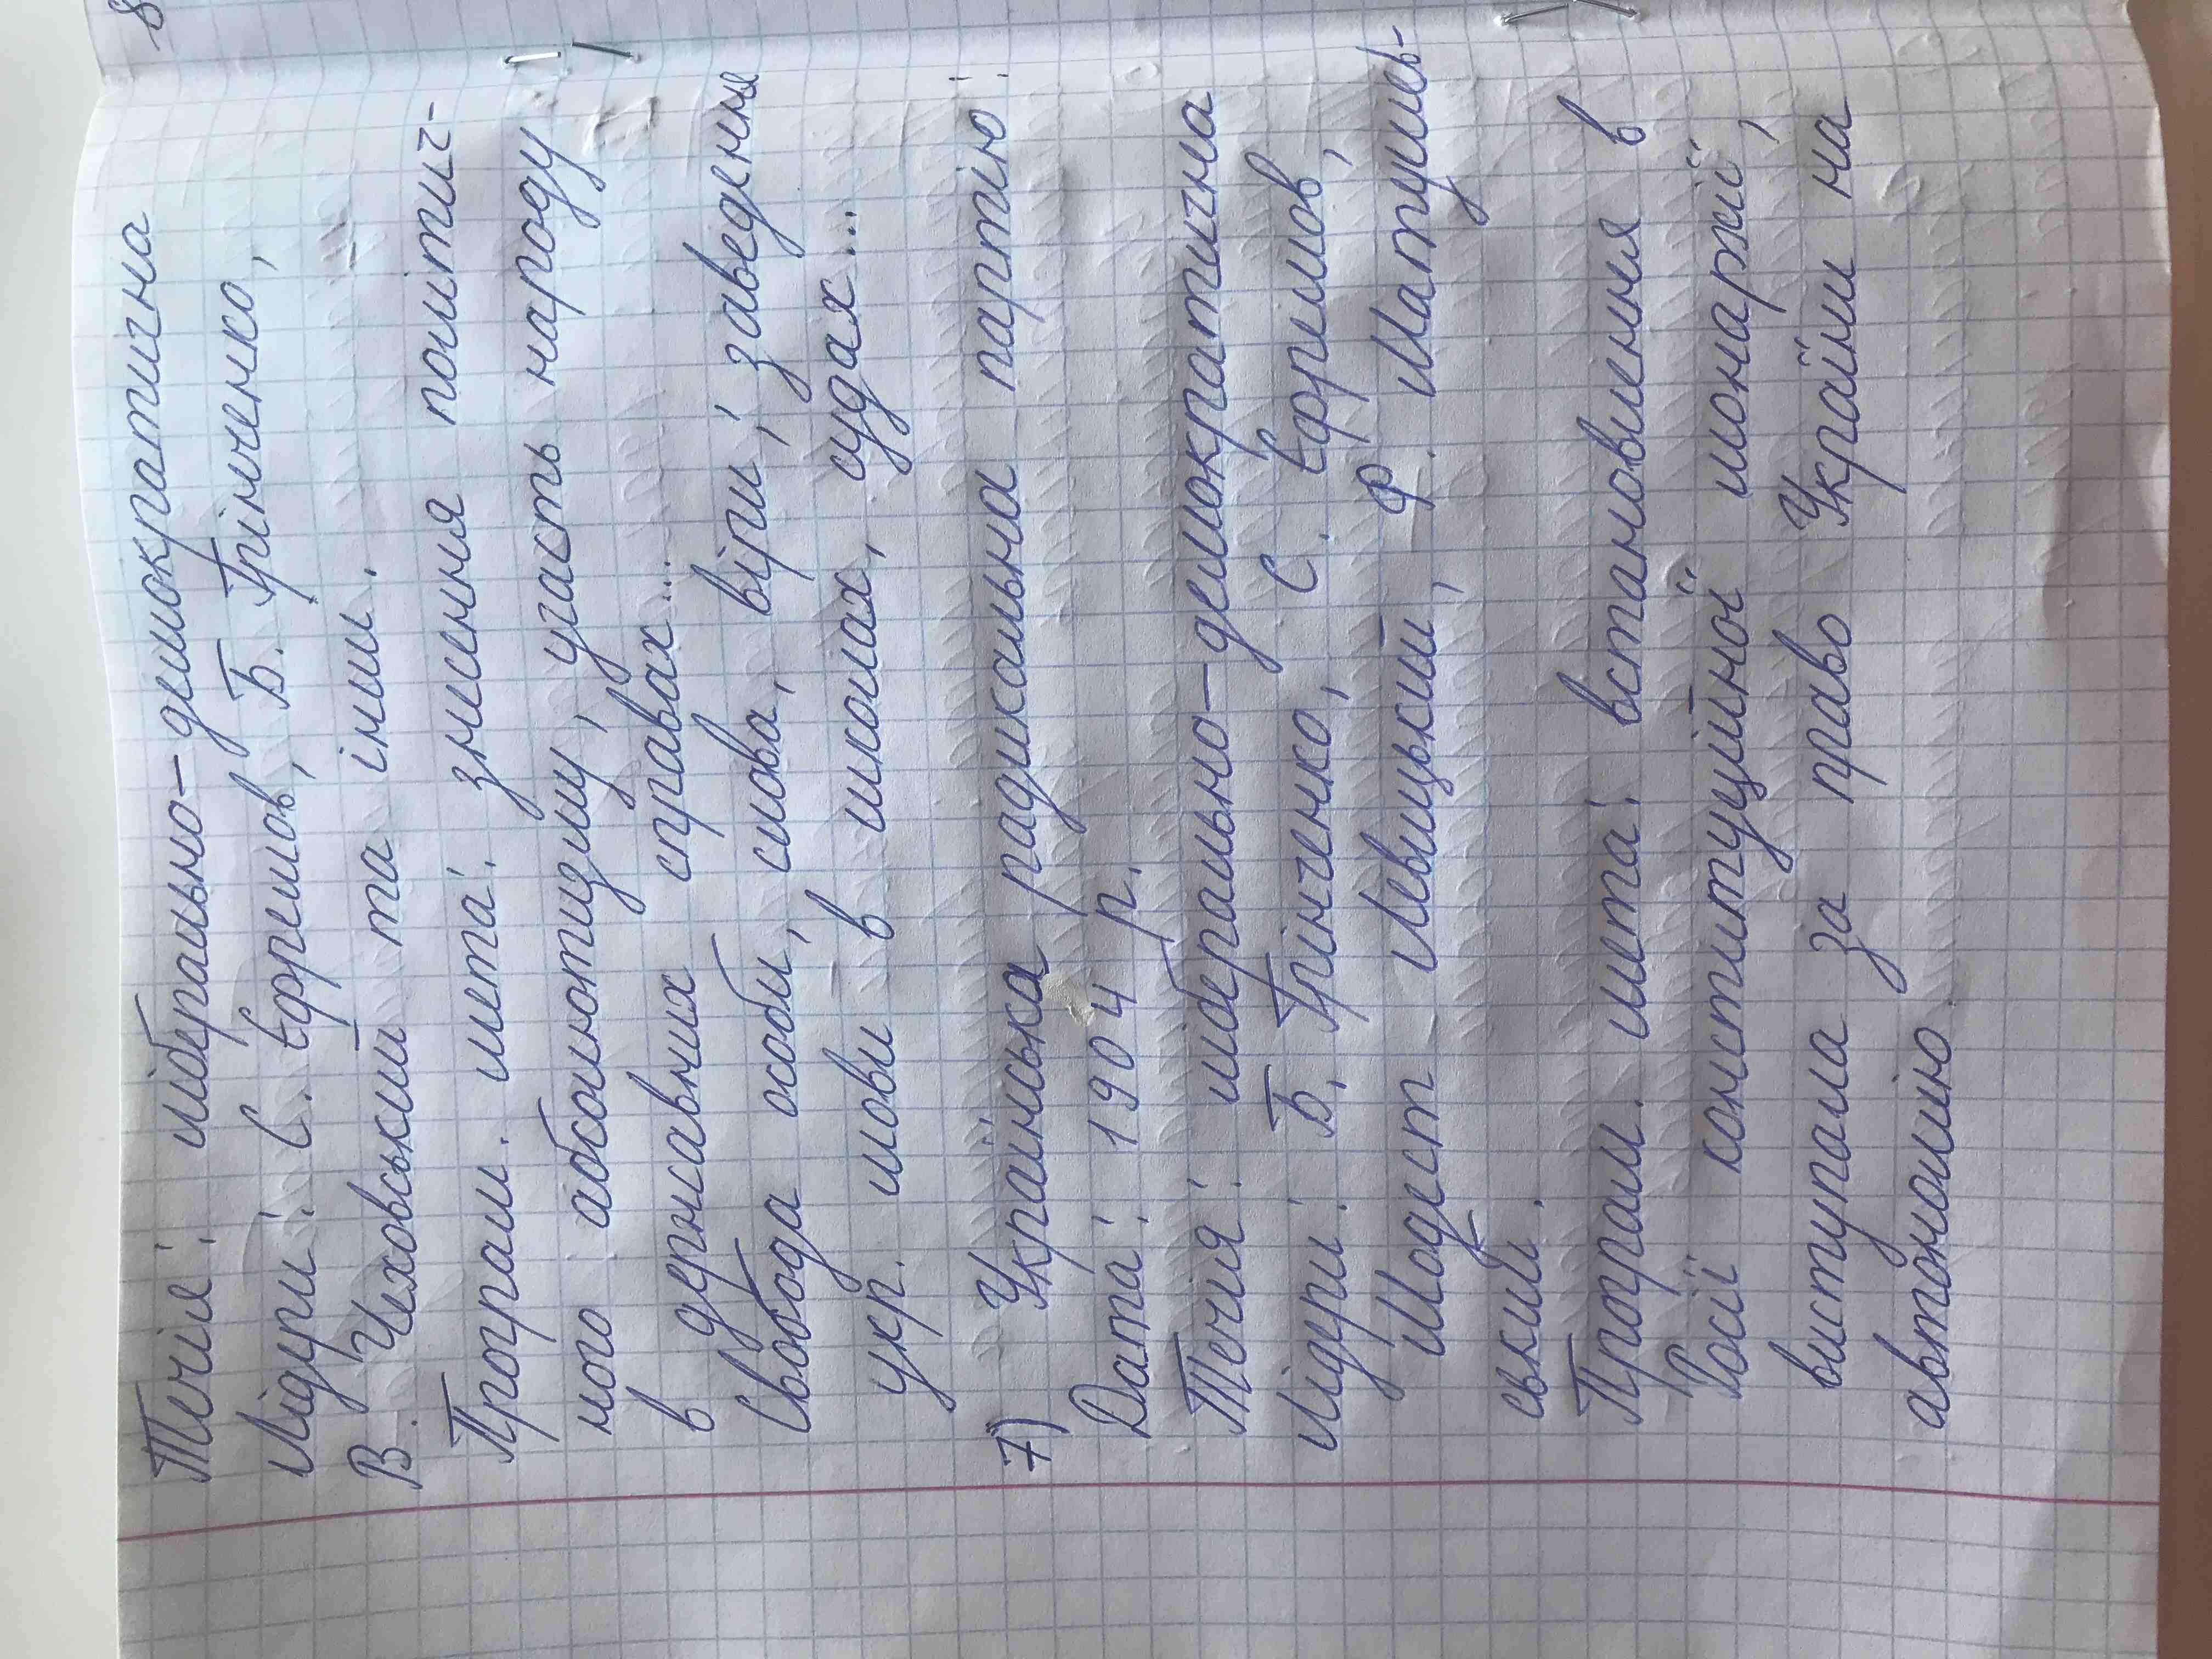 Течія: ліберально-демократична
Лідери: С. Єфремов, Б. Грінченко,
В. Чеховський та інші.
Програм. мета: знищення політич-
ного абсолютизму, участь народу
в державних справах...
Свобода особи, слова, віри, заведення
укр. мови в школах, судах...
7) Українська радикальна партію:
Дата: 1904 р.
Течія: ліберально-демократична
Лідери: Б. Грінченко, С. Єфремов,
Модест Левицький, Ф. Матушев-
ський.
Програм. мета: встановлення в
Росії конституційної монархії,
виступала за право України на
автономію.